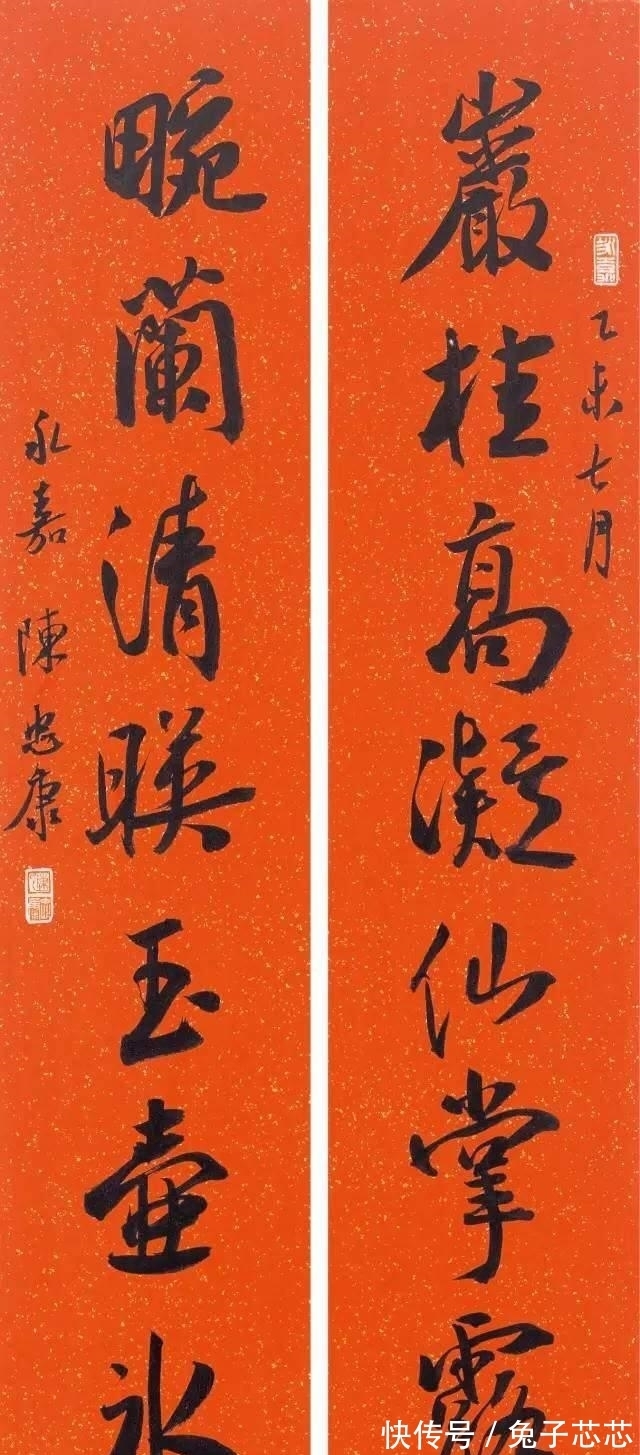 乙未七月
巖桂高凝仙掌露
畹蘭清暎玉壺氷
永嘉 陳忠康
快传号 / 兔子芯芯